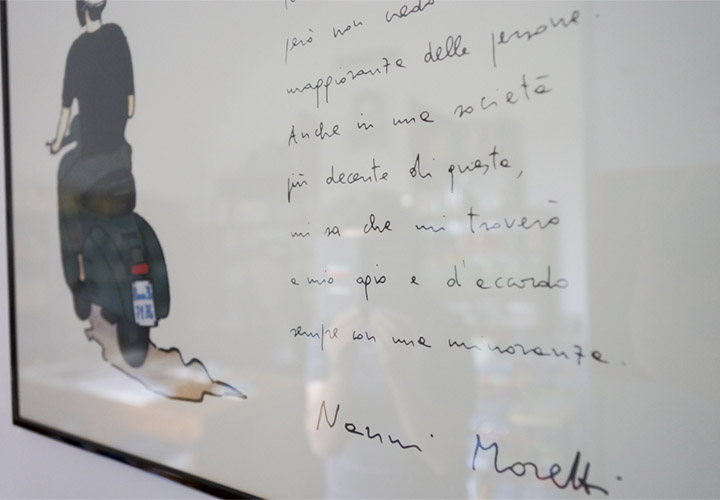 però non credo
maggioranza delle persone.
Anche in una società
più decente di questa,
mi sa che mi troverò
a mio agio e d'accordo
sempre con una minoranza.
Nanni Moretti